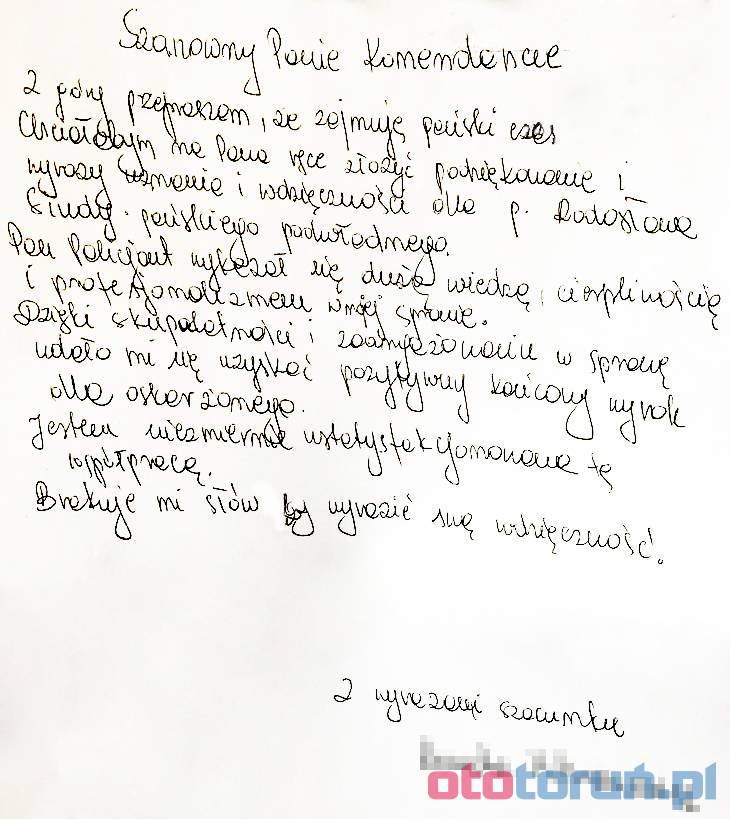 Szanowny Panie Komendancie
Z góry przepraszam, że zajmuję pański czas
Chciałabym na Pana ręce złożyć podziękowanie i
wyrazy uznania i wdzięczności dla p. Radosława
Sindy. pańskiego podwładnego.
Pan Policjant wykazał się dużą wiedzą, cierpliwością
i profesjonalizmem w mojej sprawie.
Dzięki skrupulatności i zaangażowaniu w sprawę
udało mi się uzyskać pozytywny końcowy wyrok
dla oskarżonego.
Jestem niezmiernie usatysfakcjonowana tą
współpracą.
Brakuje mi słów by wyrazić swą wdzięczność.
Z wyrazami szacunku
ototoruń.pl